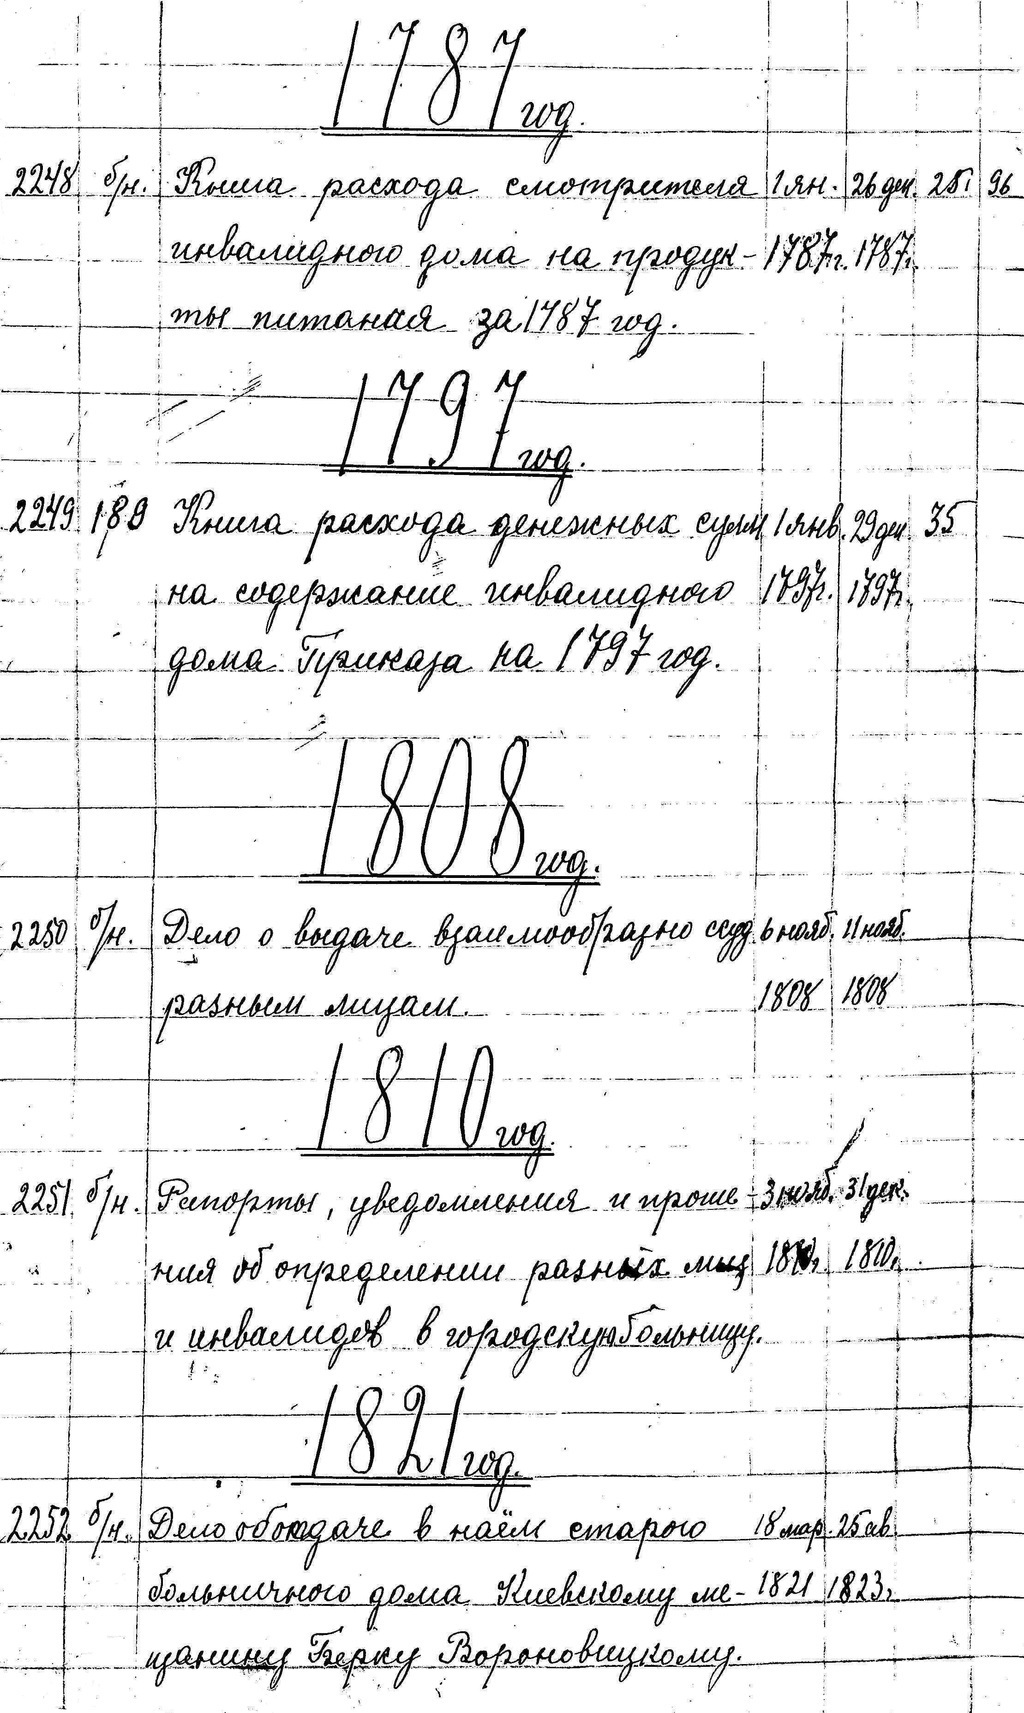 1787 год.
2248 б/н. Книга расхода смотрителя 1 ян. 26 дек. 25. 96
инвалидного дома на продук- 1787г. 1787г.
ты питания за 1787 год.
1797 год.
2249 189 Книга расхода денежных сумм 1 янв. 29 дек. 35
на содержание инвалидного 1797г. 1797г.
дома Приказа на 1797 год.
1808 год.
2250 б/н. Дело о выдаче взаимообразно ссуд 6 нояб. 11 нояб.
разным лицам. 1808 1808
1810 год.
2251 б/н. Рапорты, уведомления и проше- 3 нояб. 31 дек.
ния об определении разных лиц 1810г. 1810г.
и инвалидов в городскую больницу.
1821 год.
2252 б/н. Дело об отдаче в наём старого 18 мар. 25 ав.
больничного дома Киевскому ме- 1821 1823г.
щанину Берку Вороновицкому.